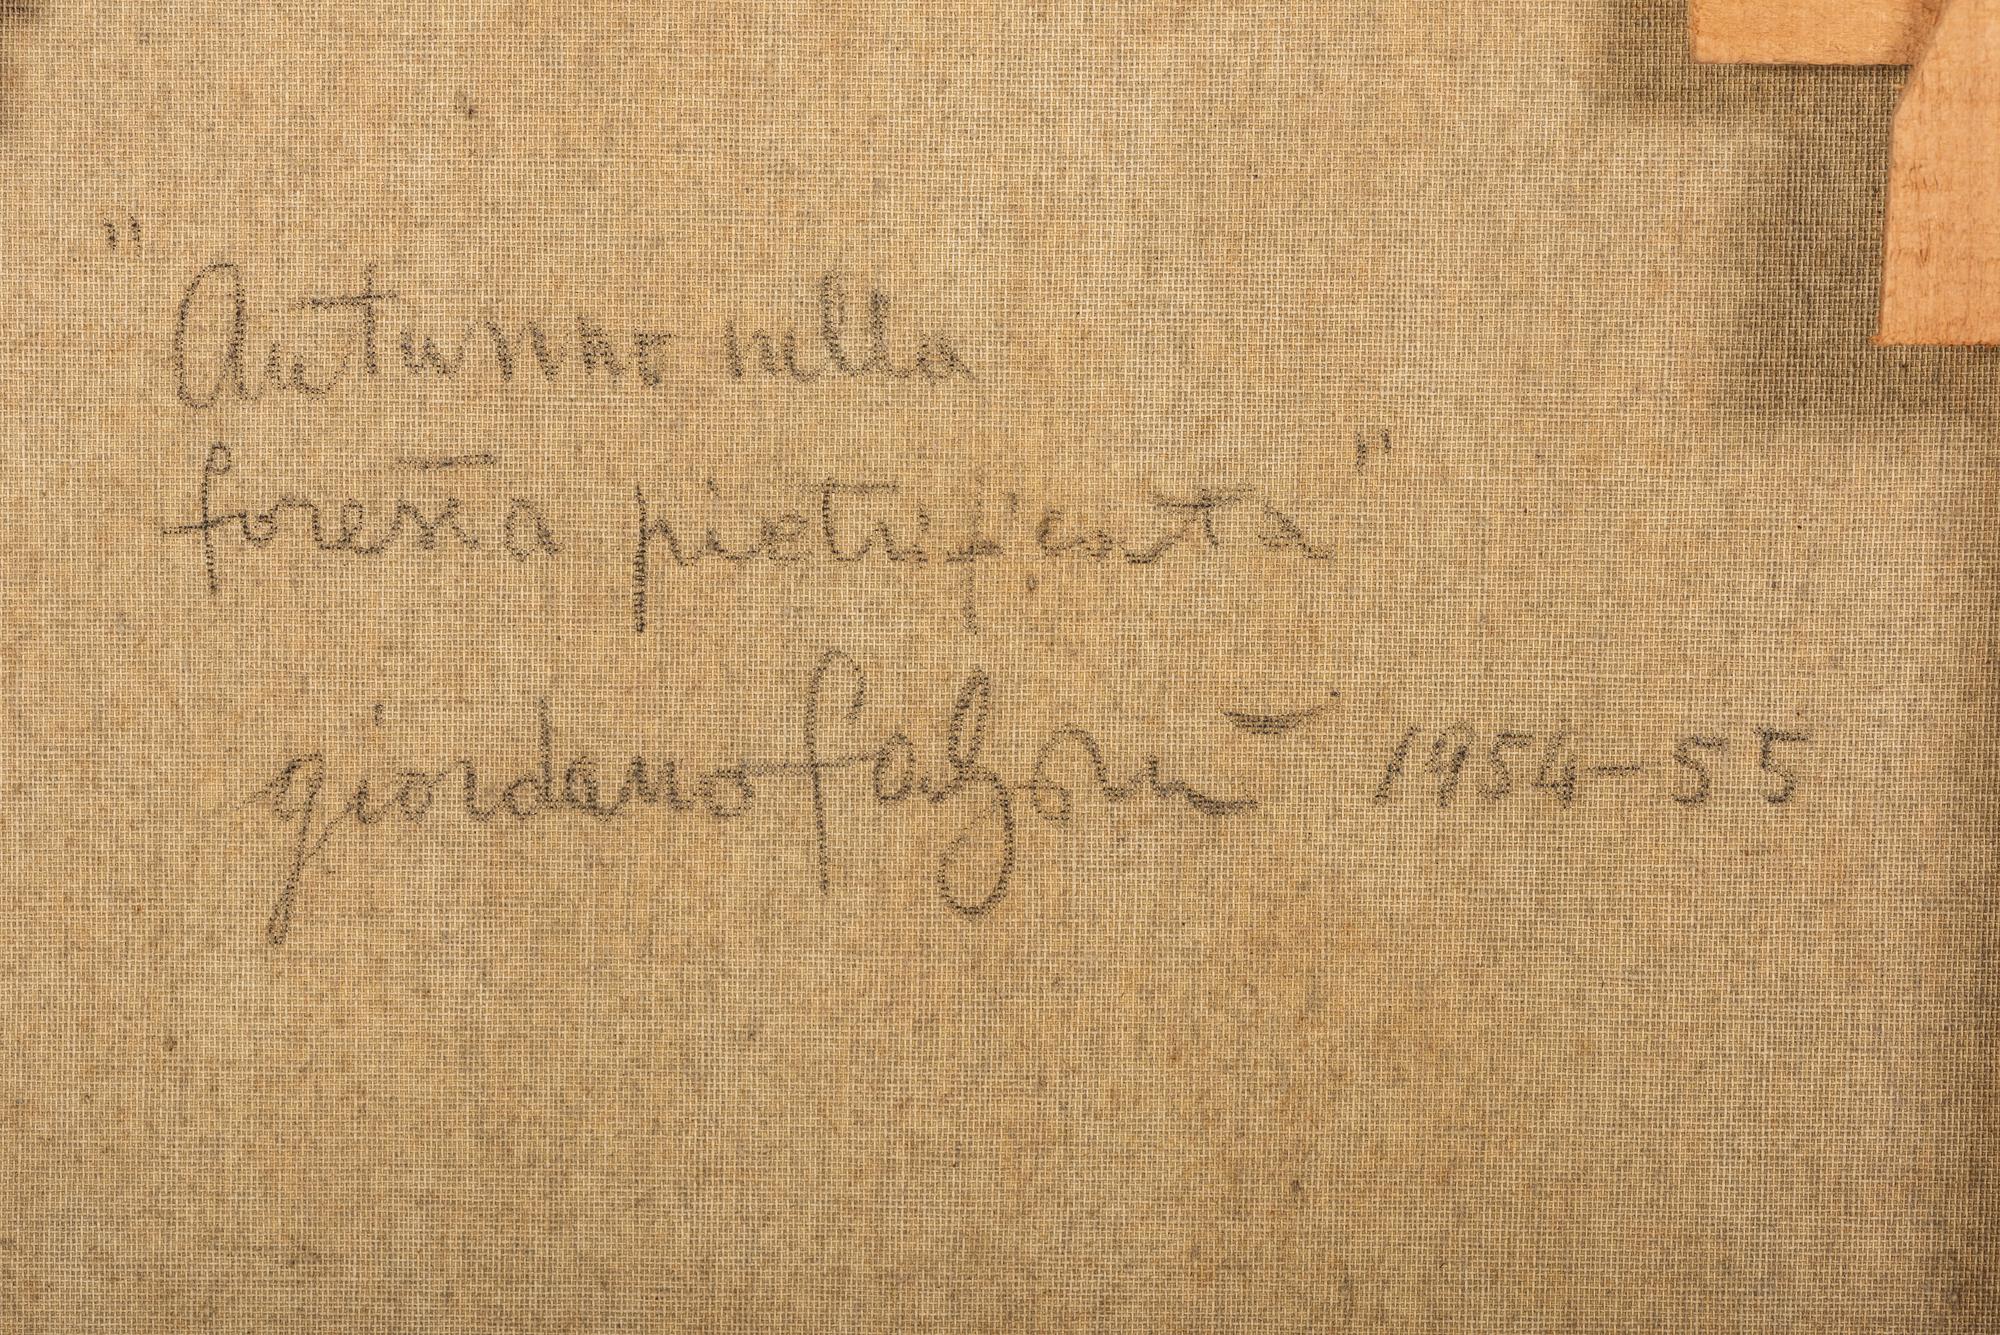 "Autunno nella
foresta pietrificata"
giordano falzoni 1954-55